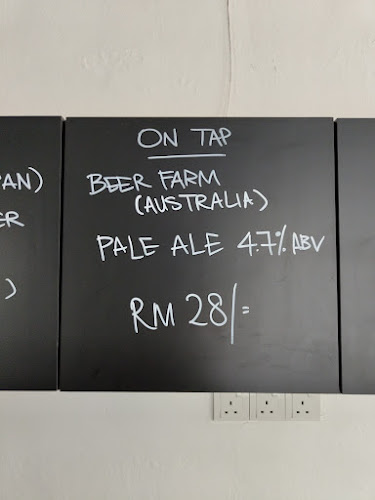 ON TAP
BEER FARM
(AUSTRALIA)
PALE ALE 4.7% ABV
RM 28/=
PAN)
ER
)